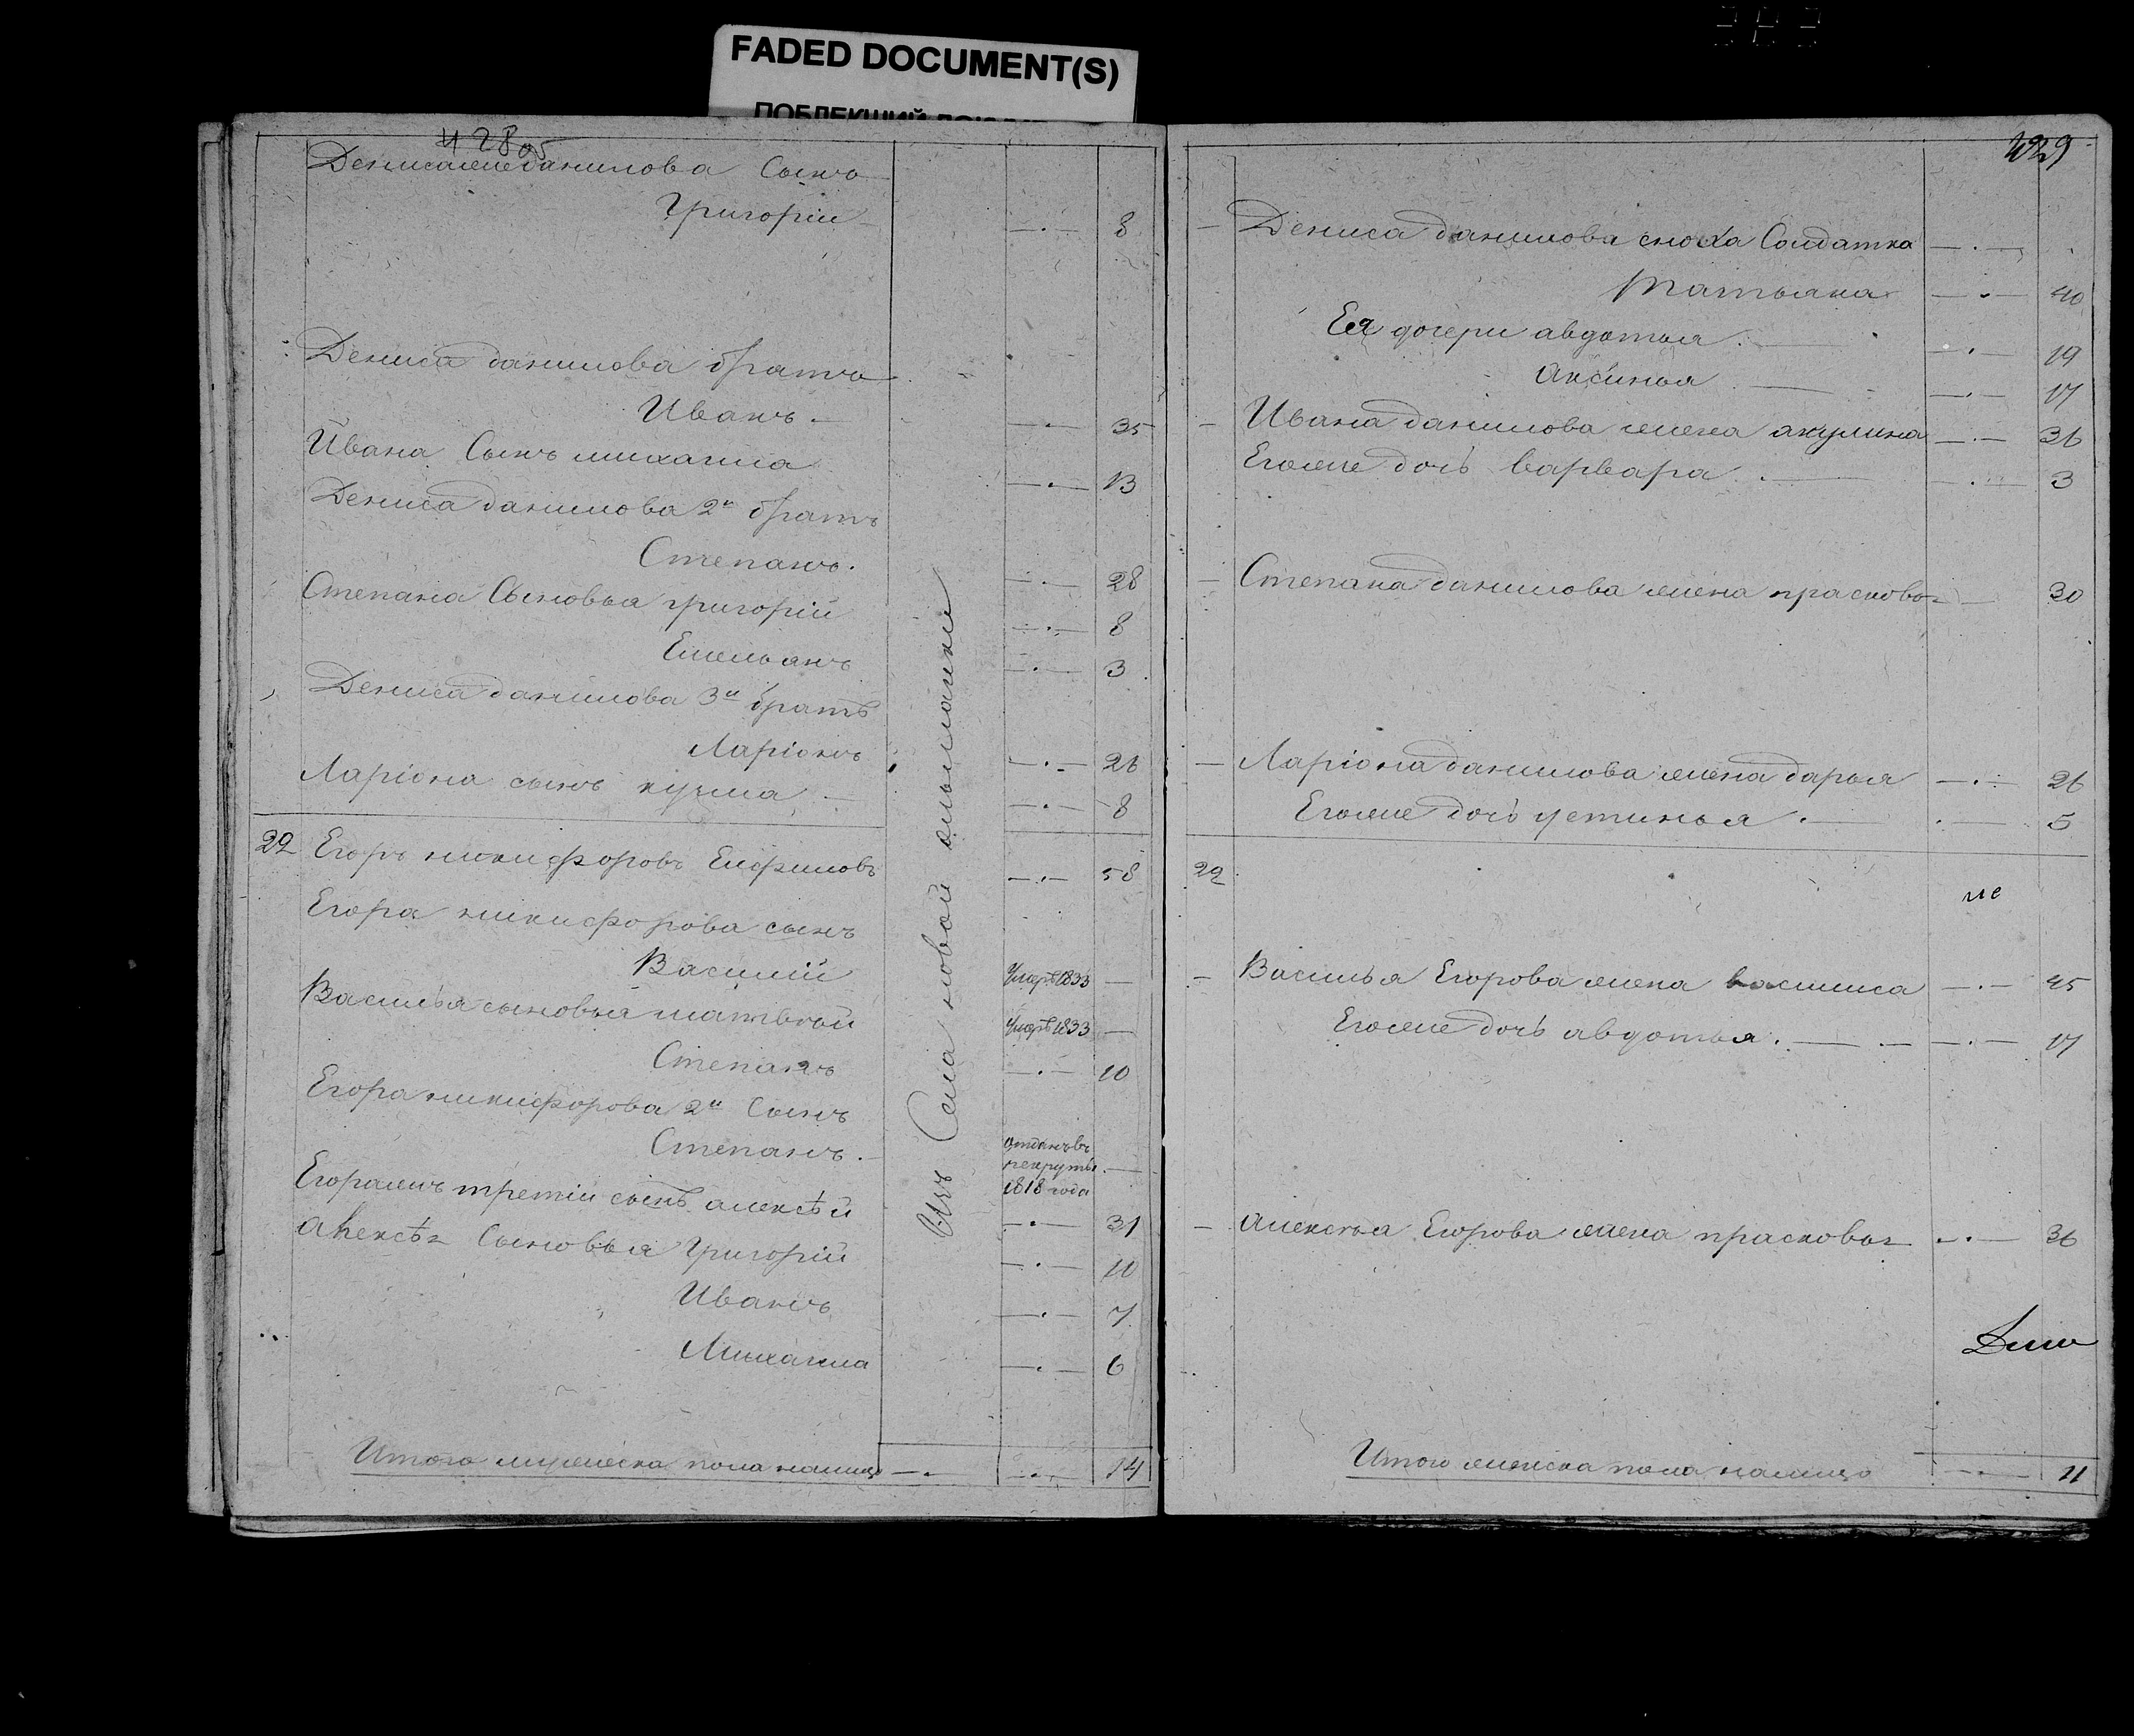 FADED DOCUMENT(S)
ПОБЛЕКШИЙ
428 об
Дениса же данилова Сынъ
Григорій 8
Дениса данилова братъ
Иванъ. 35
Ивана Сынъ михаила 13
Дениса данилова 2й братъ
Степанъ. 28
Степана Сыновья григорій 8
Емельянъ 3
Дениса данилова 3й братъ
Ларіонъ 26
Ларіона сынъ кузма 8
22 Егоръ никифоровъ 58
Егора никифорова сынъ
Василій умеръ 1833 —
Василья сыновья матвѣй умеръ 1833 —
Степанъ 10
Егора никифорова 2й Сынъ
Степанъ. отданъ въ
рекруты —
1818 года
Егора же третій сынъ алексѣй 31
алексѣя Сыновья Григорій 10
Иванъ 7
Михаила 6
Итого мужеска пола налицо 14
Изъ Села новой
429
Дениса данилова сноха Солдатка
Татьяна 40
Ея дочери авдотья 19
Аксинья 17
Ивана данилова жена акулина 36
Его же дочь варвара 3
Степана данилова жена прасковья 30
Ларіона данилова жена дарья 26
Его же дочь устинья 5
22
Василья Егорова жена василиса 45
Его же дочь авдотья. 17
алексѣя Егорова жена прасковья 36
Итого женска пола налицо 11